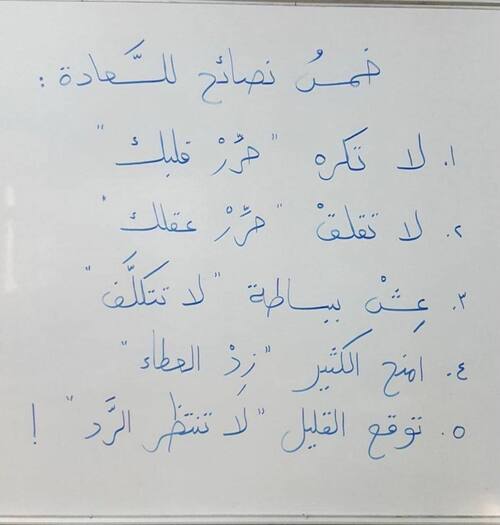 خمسُ نصائح للسَّعادة :
١. لا تكره "حرِّرْ قلبك"
٢. لا تقلقْ "حرِّرْ عقلك"
٣. عِشْ ببساطة "لا تتكلَّف"
٤. امنح الكثير "زِدْ العطاء"
٥. توقع القليل "لَا تنتظر الرَّد" !